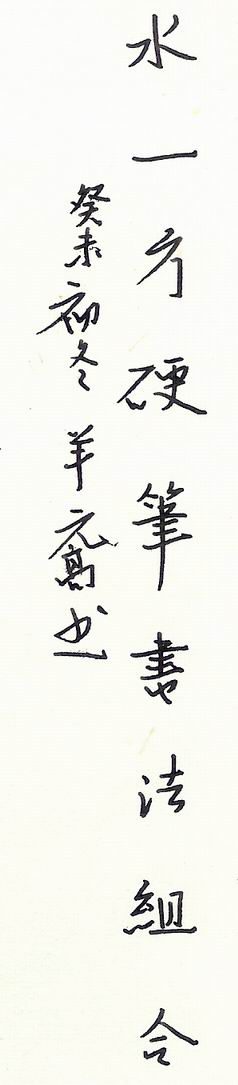 水一方硬筆書法組合
癸未初冬 羊元髙